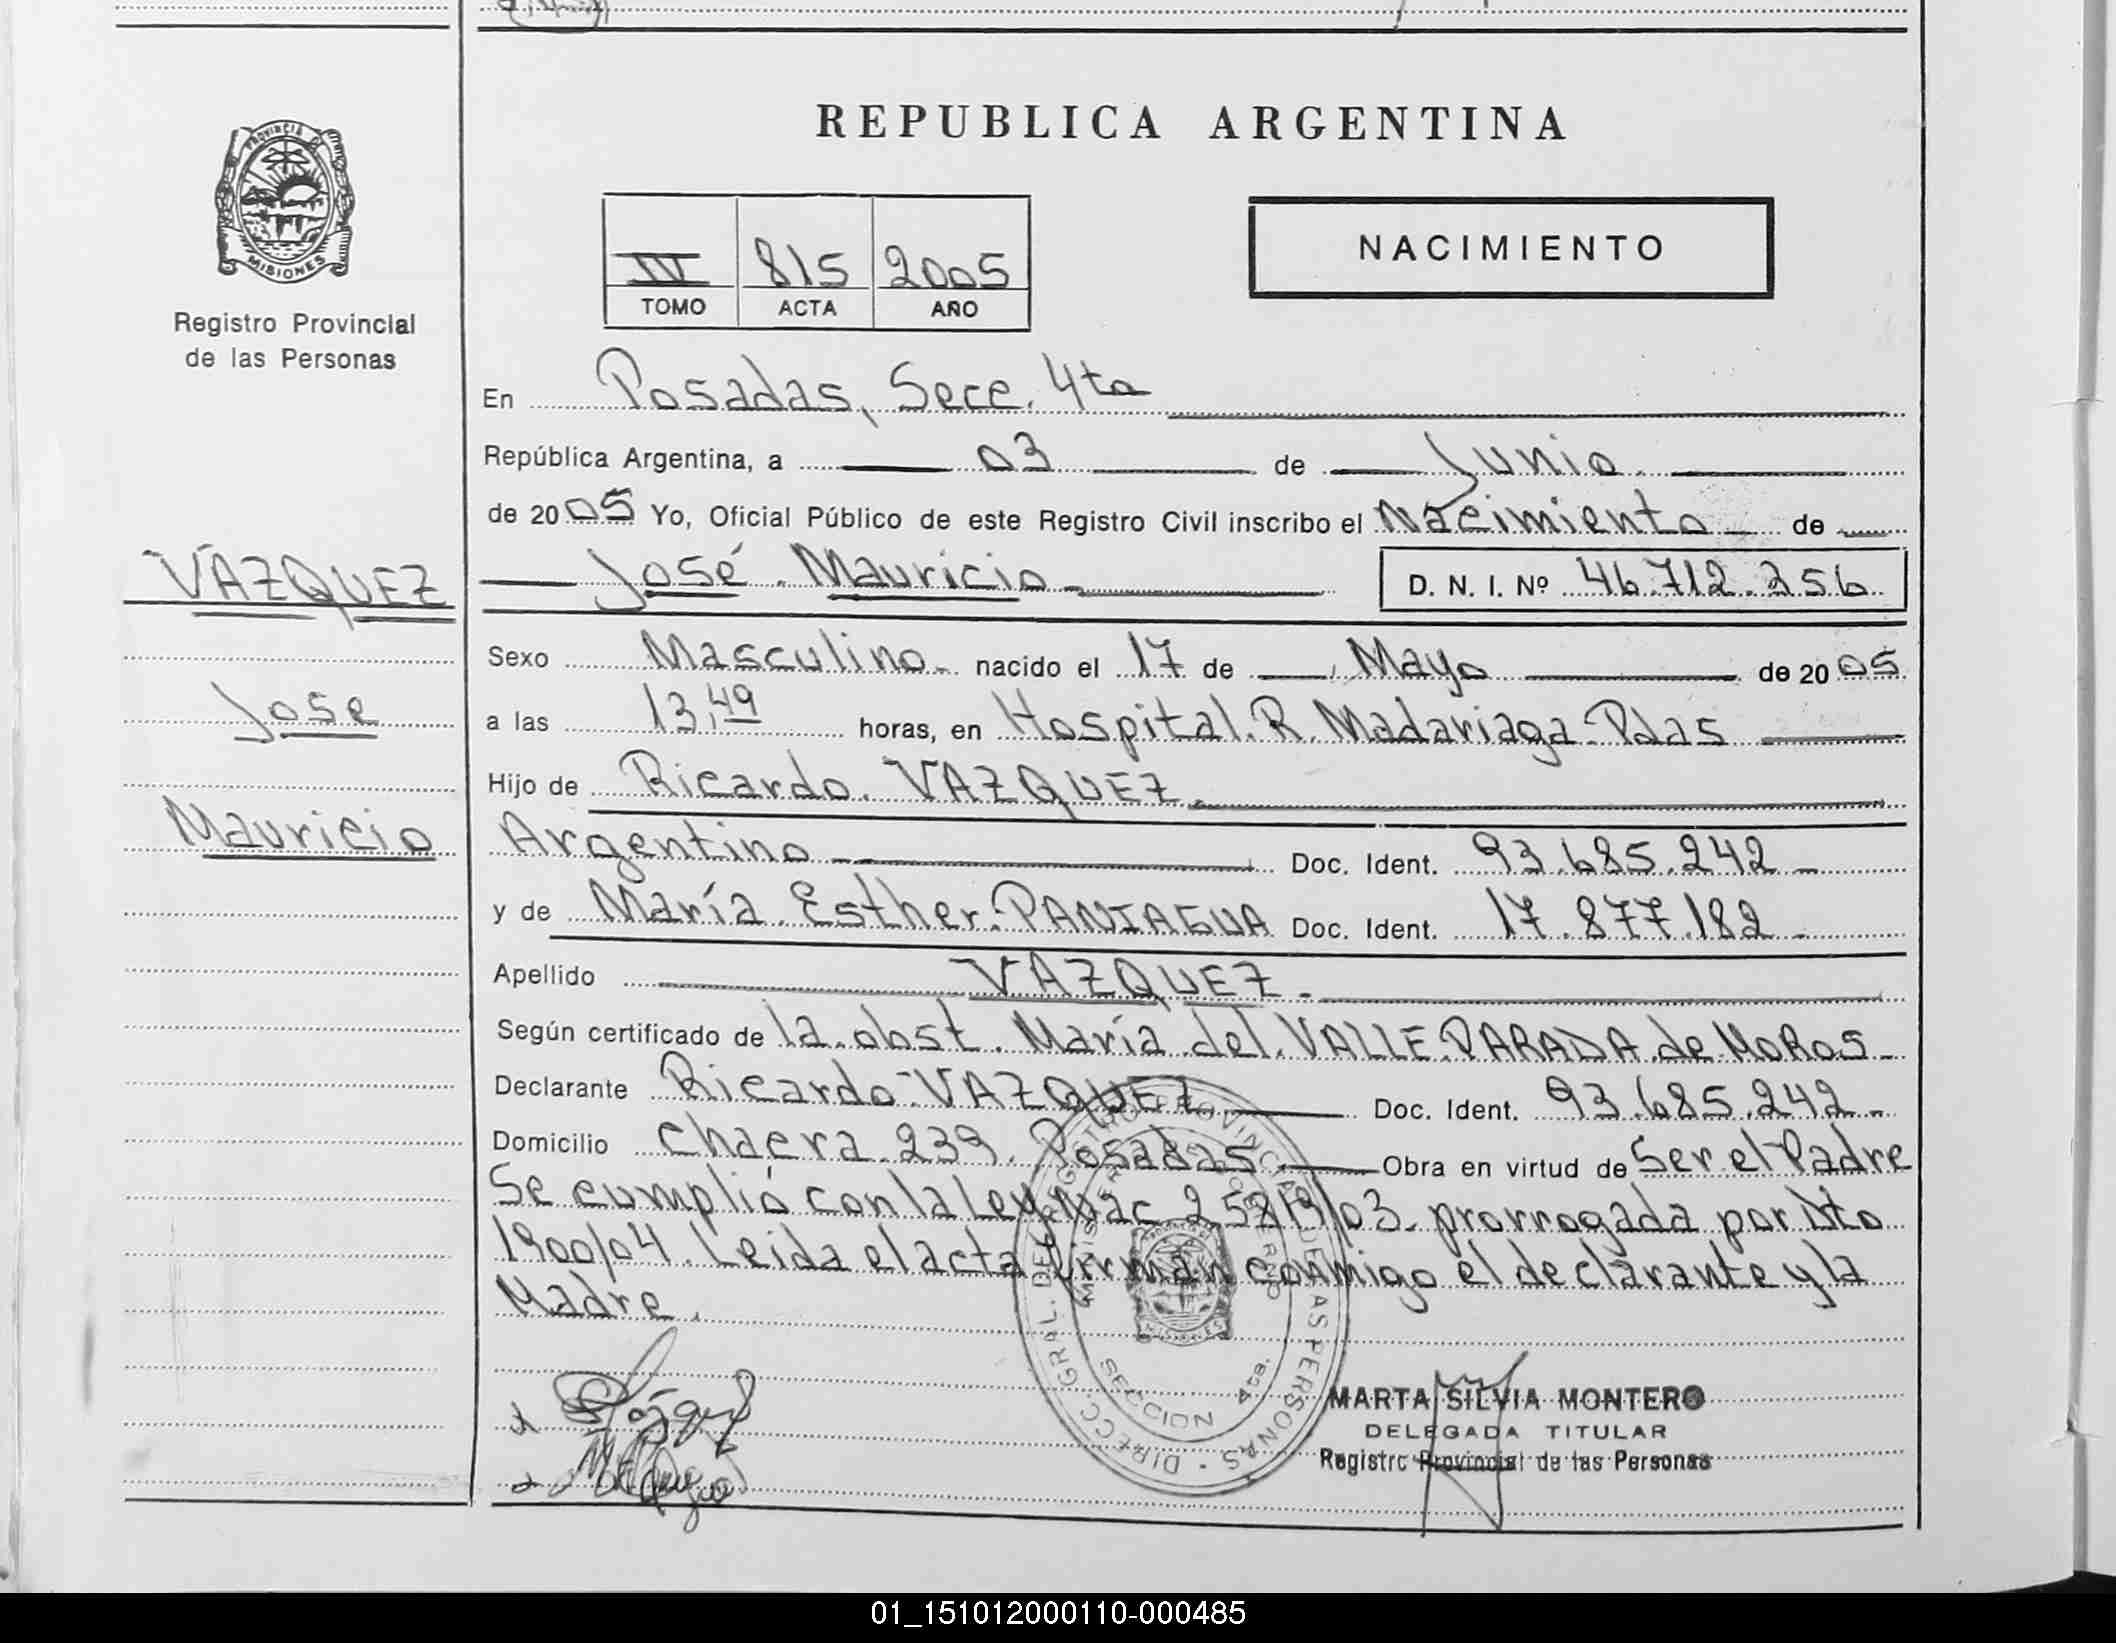 PROVINCIA D
MISIONES
Registro Provincial
de las Personas
VAZQUEZ
Jose
Mauricio
REPUBLICA ARGENTINA
IV 815 2005
TOMO ACTA AÑO
NACIMIENTO
En Posadas, Secc. 4ta
República Argentina, a 03 de Junio
de 2005 Yo, Oficial Público de este Registro Civil inscribo el Nacimiento de
José Mauricio D. N. I. Nº 46.712.356
Sexo Masculino nacido el 17 de Mayo de 2005
a las 13,49 horas, en Hospital R. Madariaga-Pdas
Hijo de Ricardo VAZQUEZ
Argentino Doc. Ident. 93.685.242
y de María Esther PANIAGUA Doc. Ident. 17.877.182
Apellido VAZQUEZ
Según certificado de la obst. María del VALLE PARADA de MOROS
Declarante Ricardo VAZQUEZ Doc. Ident. 93.685.242
Domicilio Chacra 239 Posadas Obra en virtud de Ser el Padre
Se cumplió con la Ley Nac 25819/03 prorrogada por Dto
1900/04. Leida el acta firman conmigo el declarante y la
Madre.
DIRECC. GRAL. DEL REGISTRO PROVINCIAL DE LAS PERSONAS
SECCION 4ta.
MARTA SILVIA MONTERO
DELEGADA TITULAR
Registro Provincial de las Personas
01_151012000110-000485